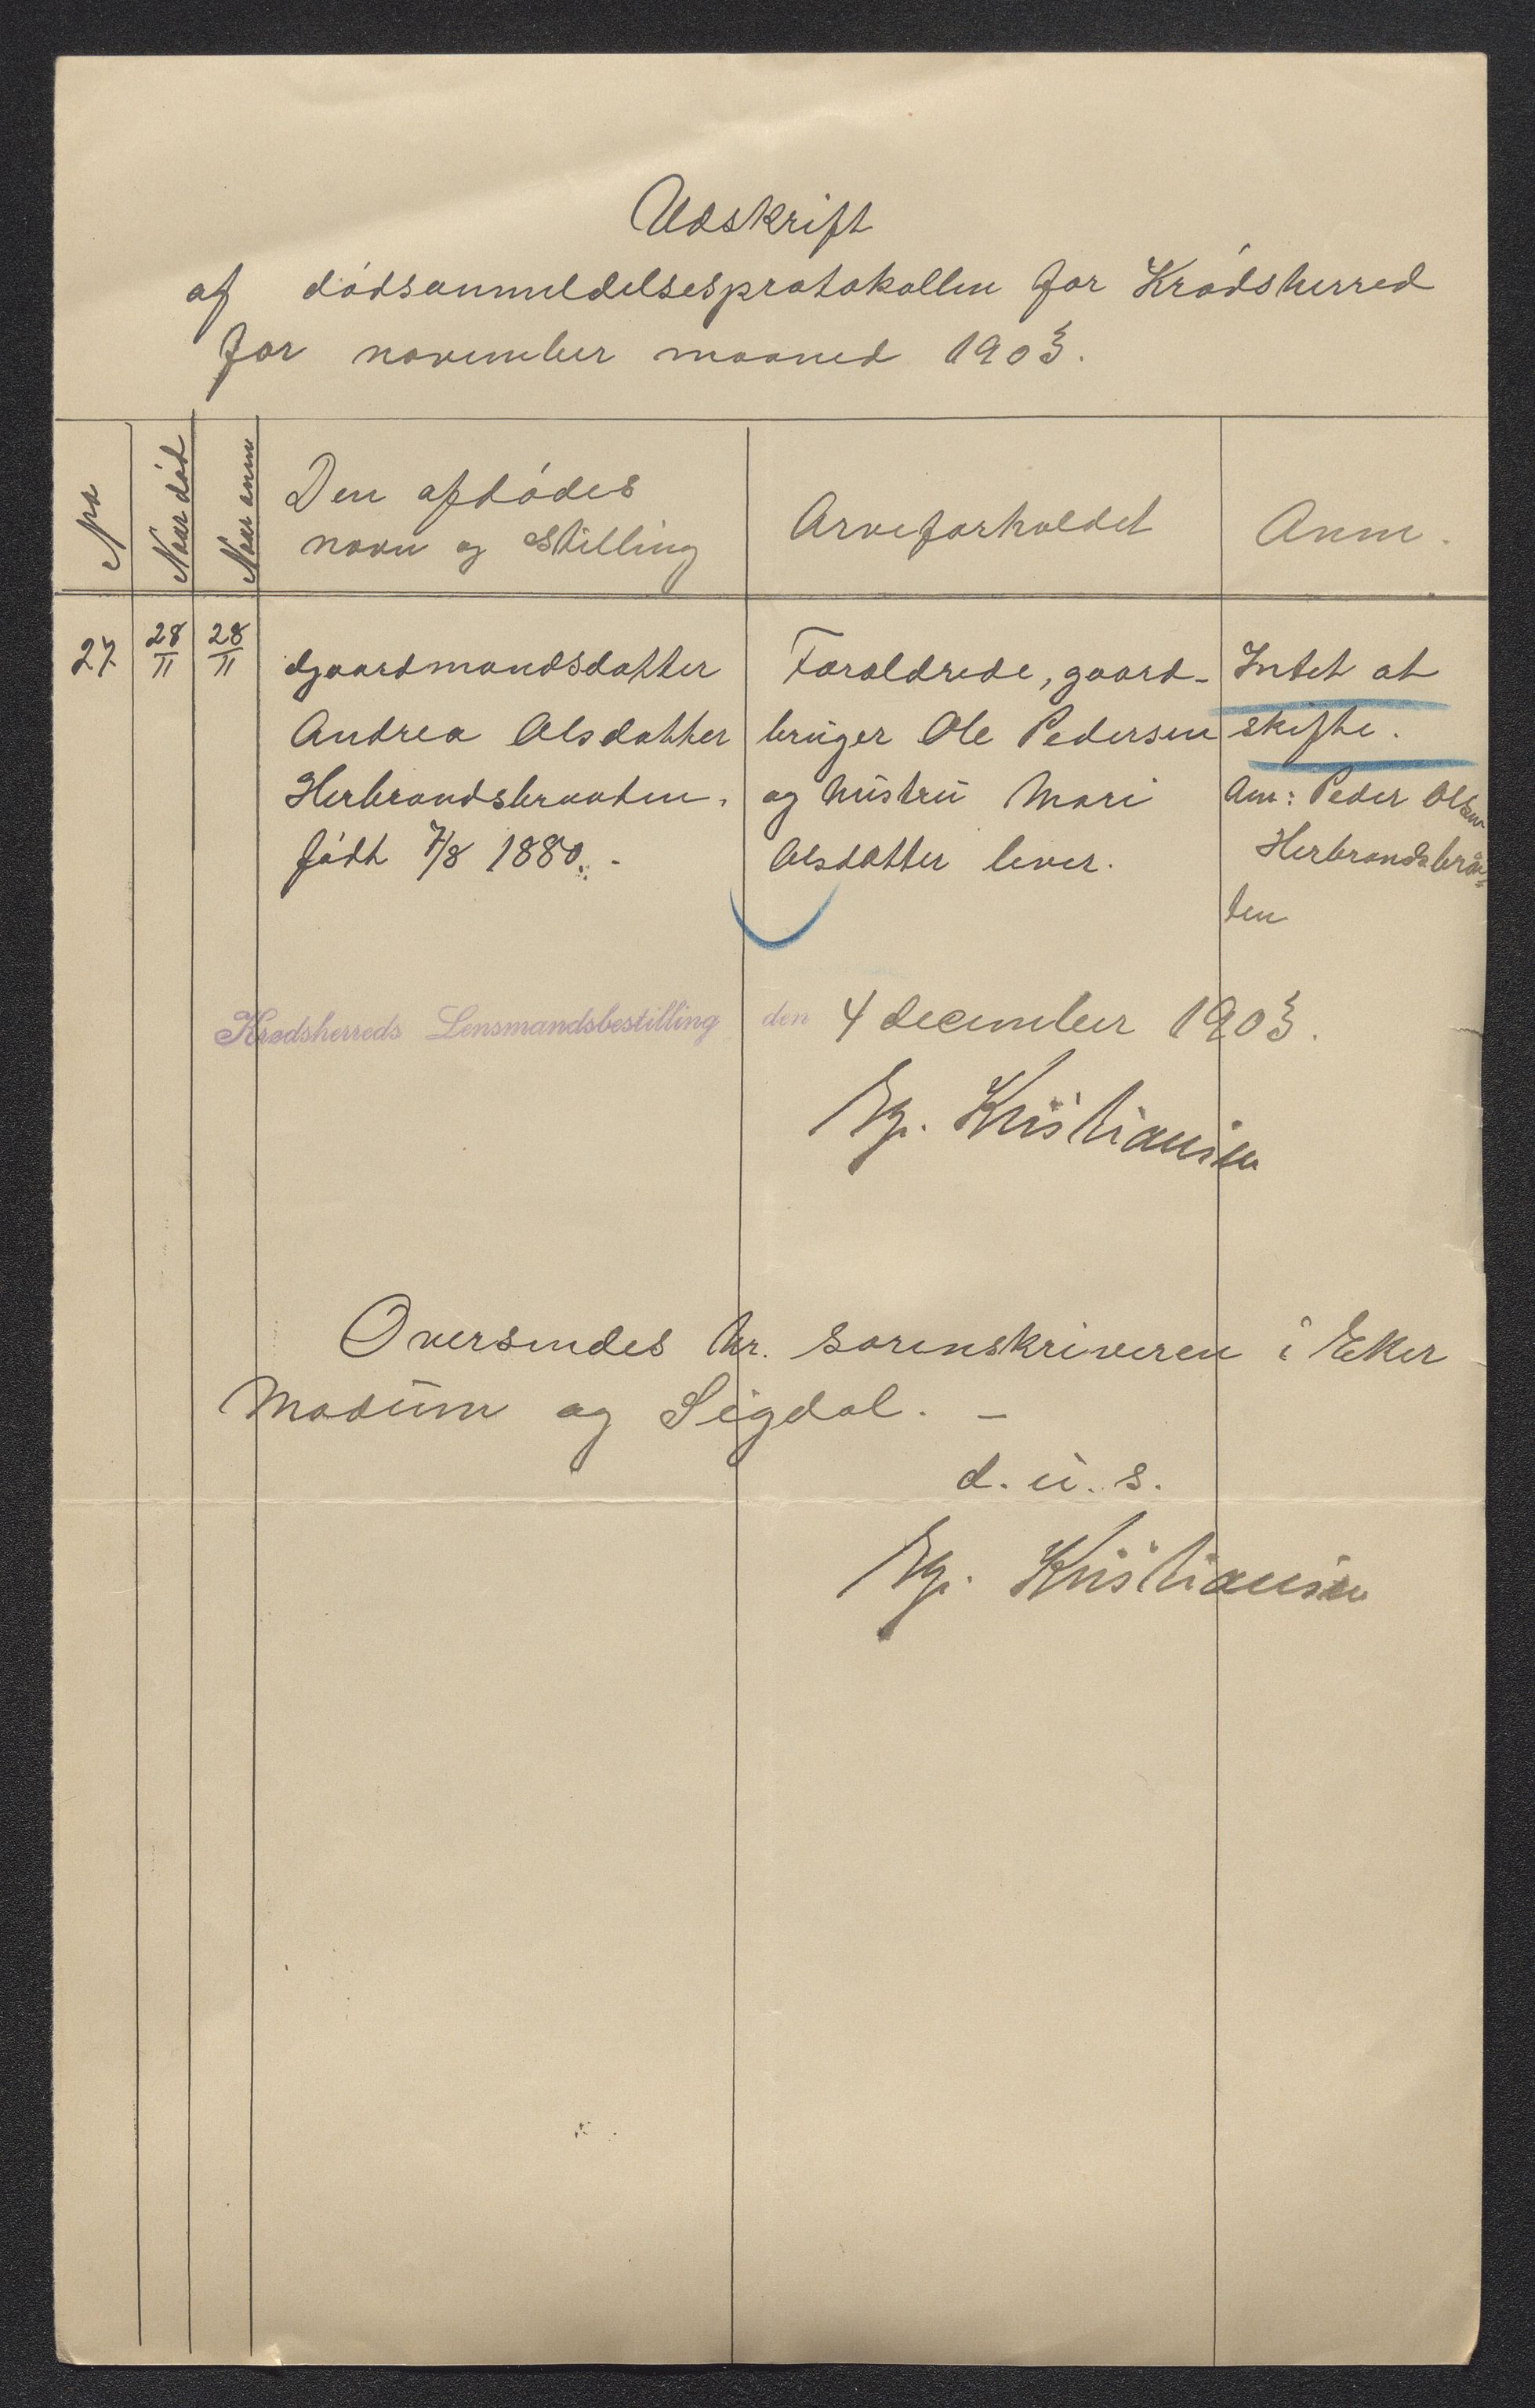 Udskrift
af dódsanmeldelsesprotokollen for Kródsherred
for november maaned 1903.
No
Naar dód
Naar anm
Den afdódes
navn og stilling
Arveforholdet
Anm.
27
28/11
28/11
Gaardmandsdatter
Andrea Olsdatter
Herbrandsbraaten.
fódt 7/8 1880. -
Foraldrede, gaard-
bruger Ole Pedersen
og hustru Mari
Olsdatter lever.
Intet at
skifte.
Am: Peder Olsen
Herbrandsbrå=
ten
Krødsherreds Lensmandsbestilling den 4 december 1903.
Eg. Kristiansen
Oversendes hr. sorenskriveren i Eker
Modum og Sigdal. -
d. u. s.
Eg. Kristiansen